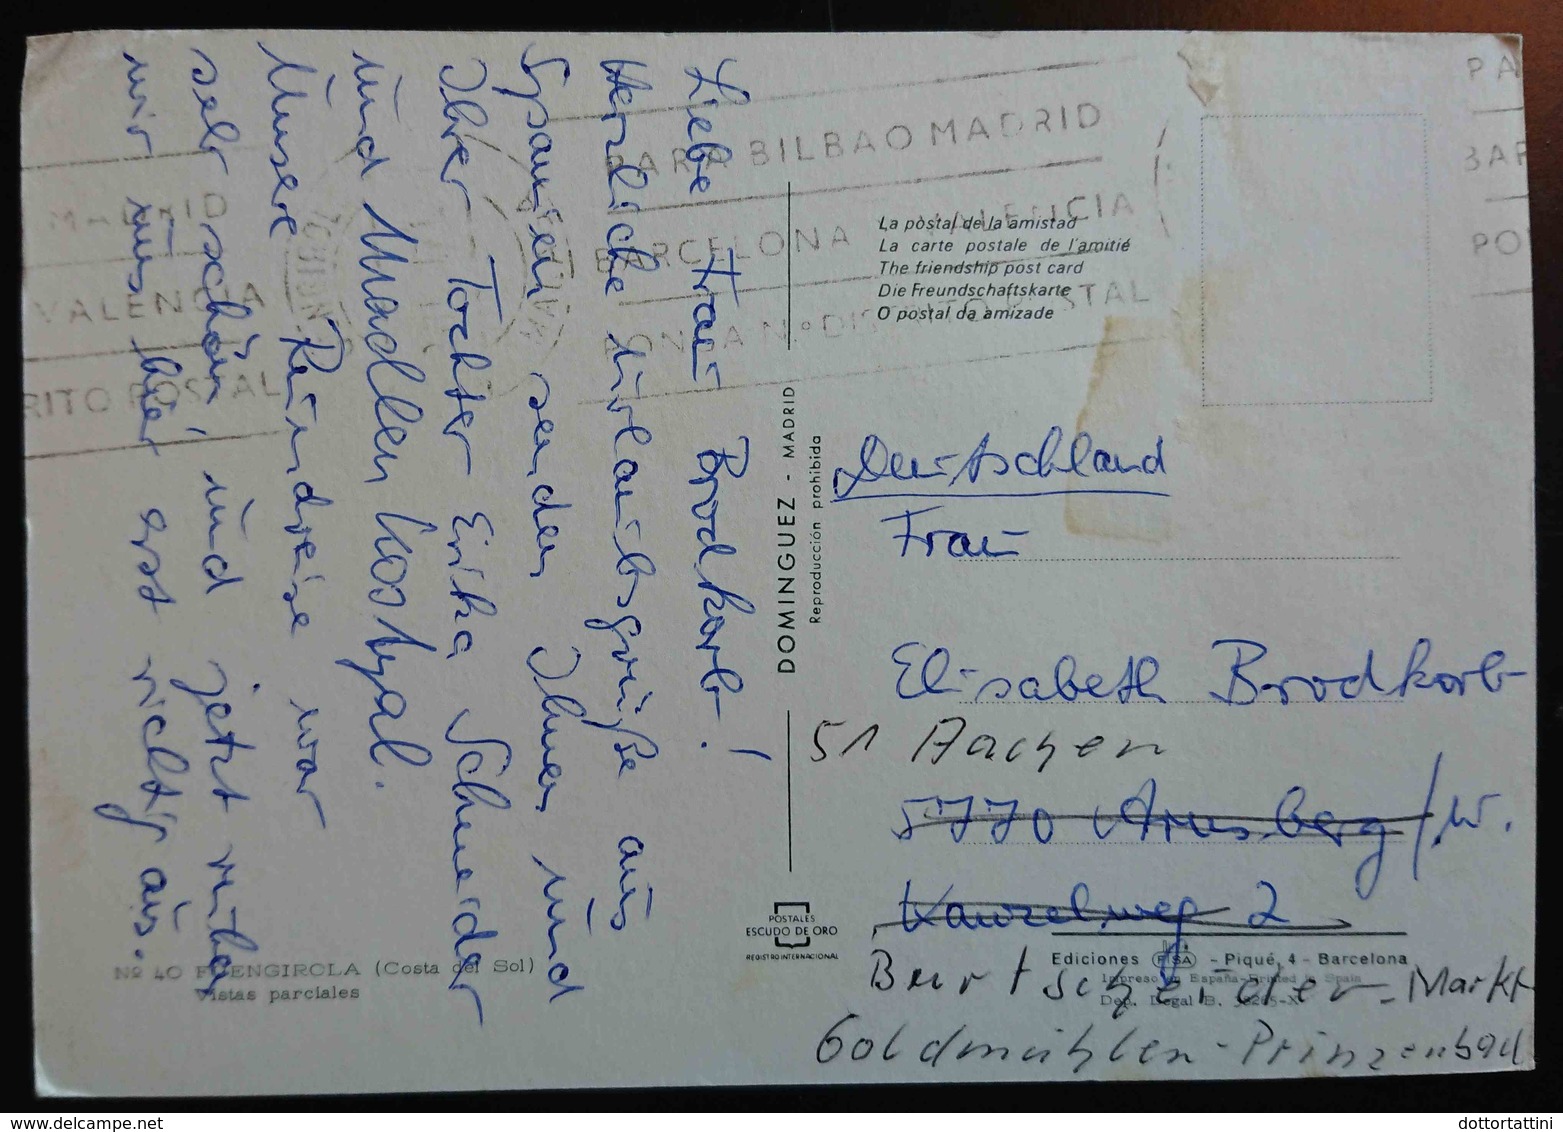 Liebe Frau Brodkorb!
Herzliche Urlaubsgrüße aus
Spanien senden Ihnen und
Ihrer Tochter Erika Schneider
und Madlen
Unsere Rundreise war
sehr schön, und jetzt ruhen
wir uns hier erst richtig aus.
Nº 40 FUENGIROLA (Costa del Sol)
Vistas parciales
PARA BILBAO MADRID
BARCELONA VALENCIA
PONGA Nº DISTRITO POSTAL
MADRID
VALENCIA
RITO POSTAL
PA
BAR
PO
La pòstal de la amistad
La carte postale de l'amitié
The friendship post card
Die Freundschaftskarte
O postal da amizade
DOMINGUEZ - MADRID
Reproducción prohibida
Deutschland
Frau
Elisabeth Brodkorb
51 Aachen
5770 Arnsberg/W.
2
Burtscheider-Markt
Goldmühlen-Prinzenbad
POSTALES
ESCUDO DE ORO
REGISTRO INTERNACIONAL
Ediciones FISA - Piqué, 4 - Barcelona
Impreso en España-Printed in Spain
Dep. Legal B.
dottortattini